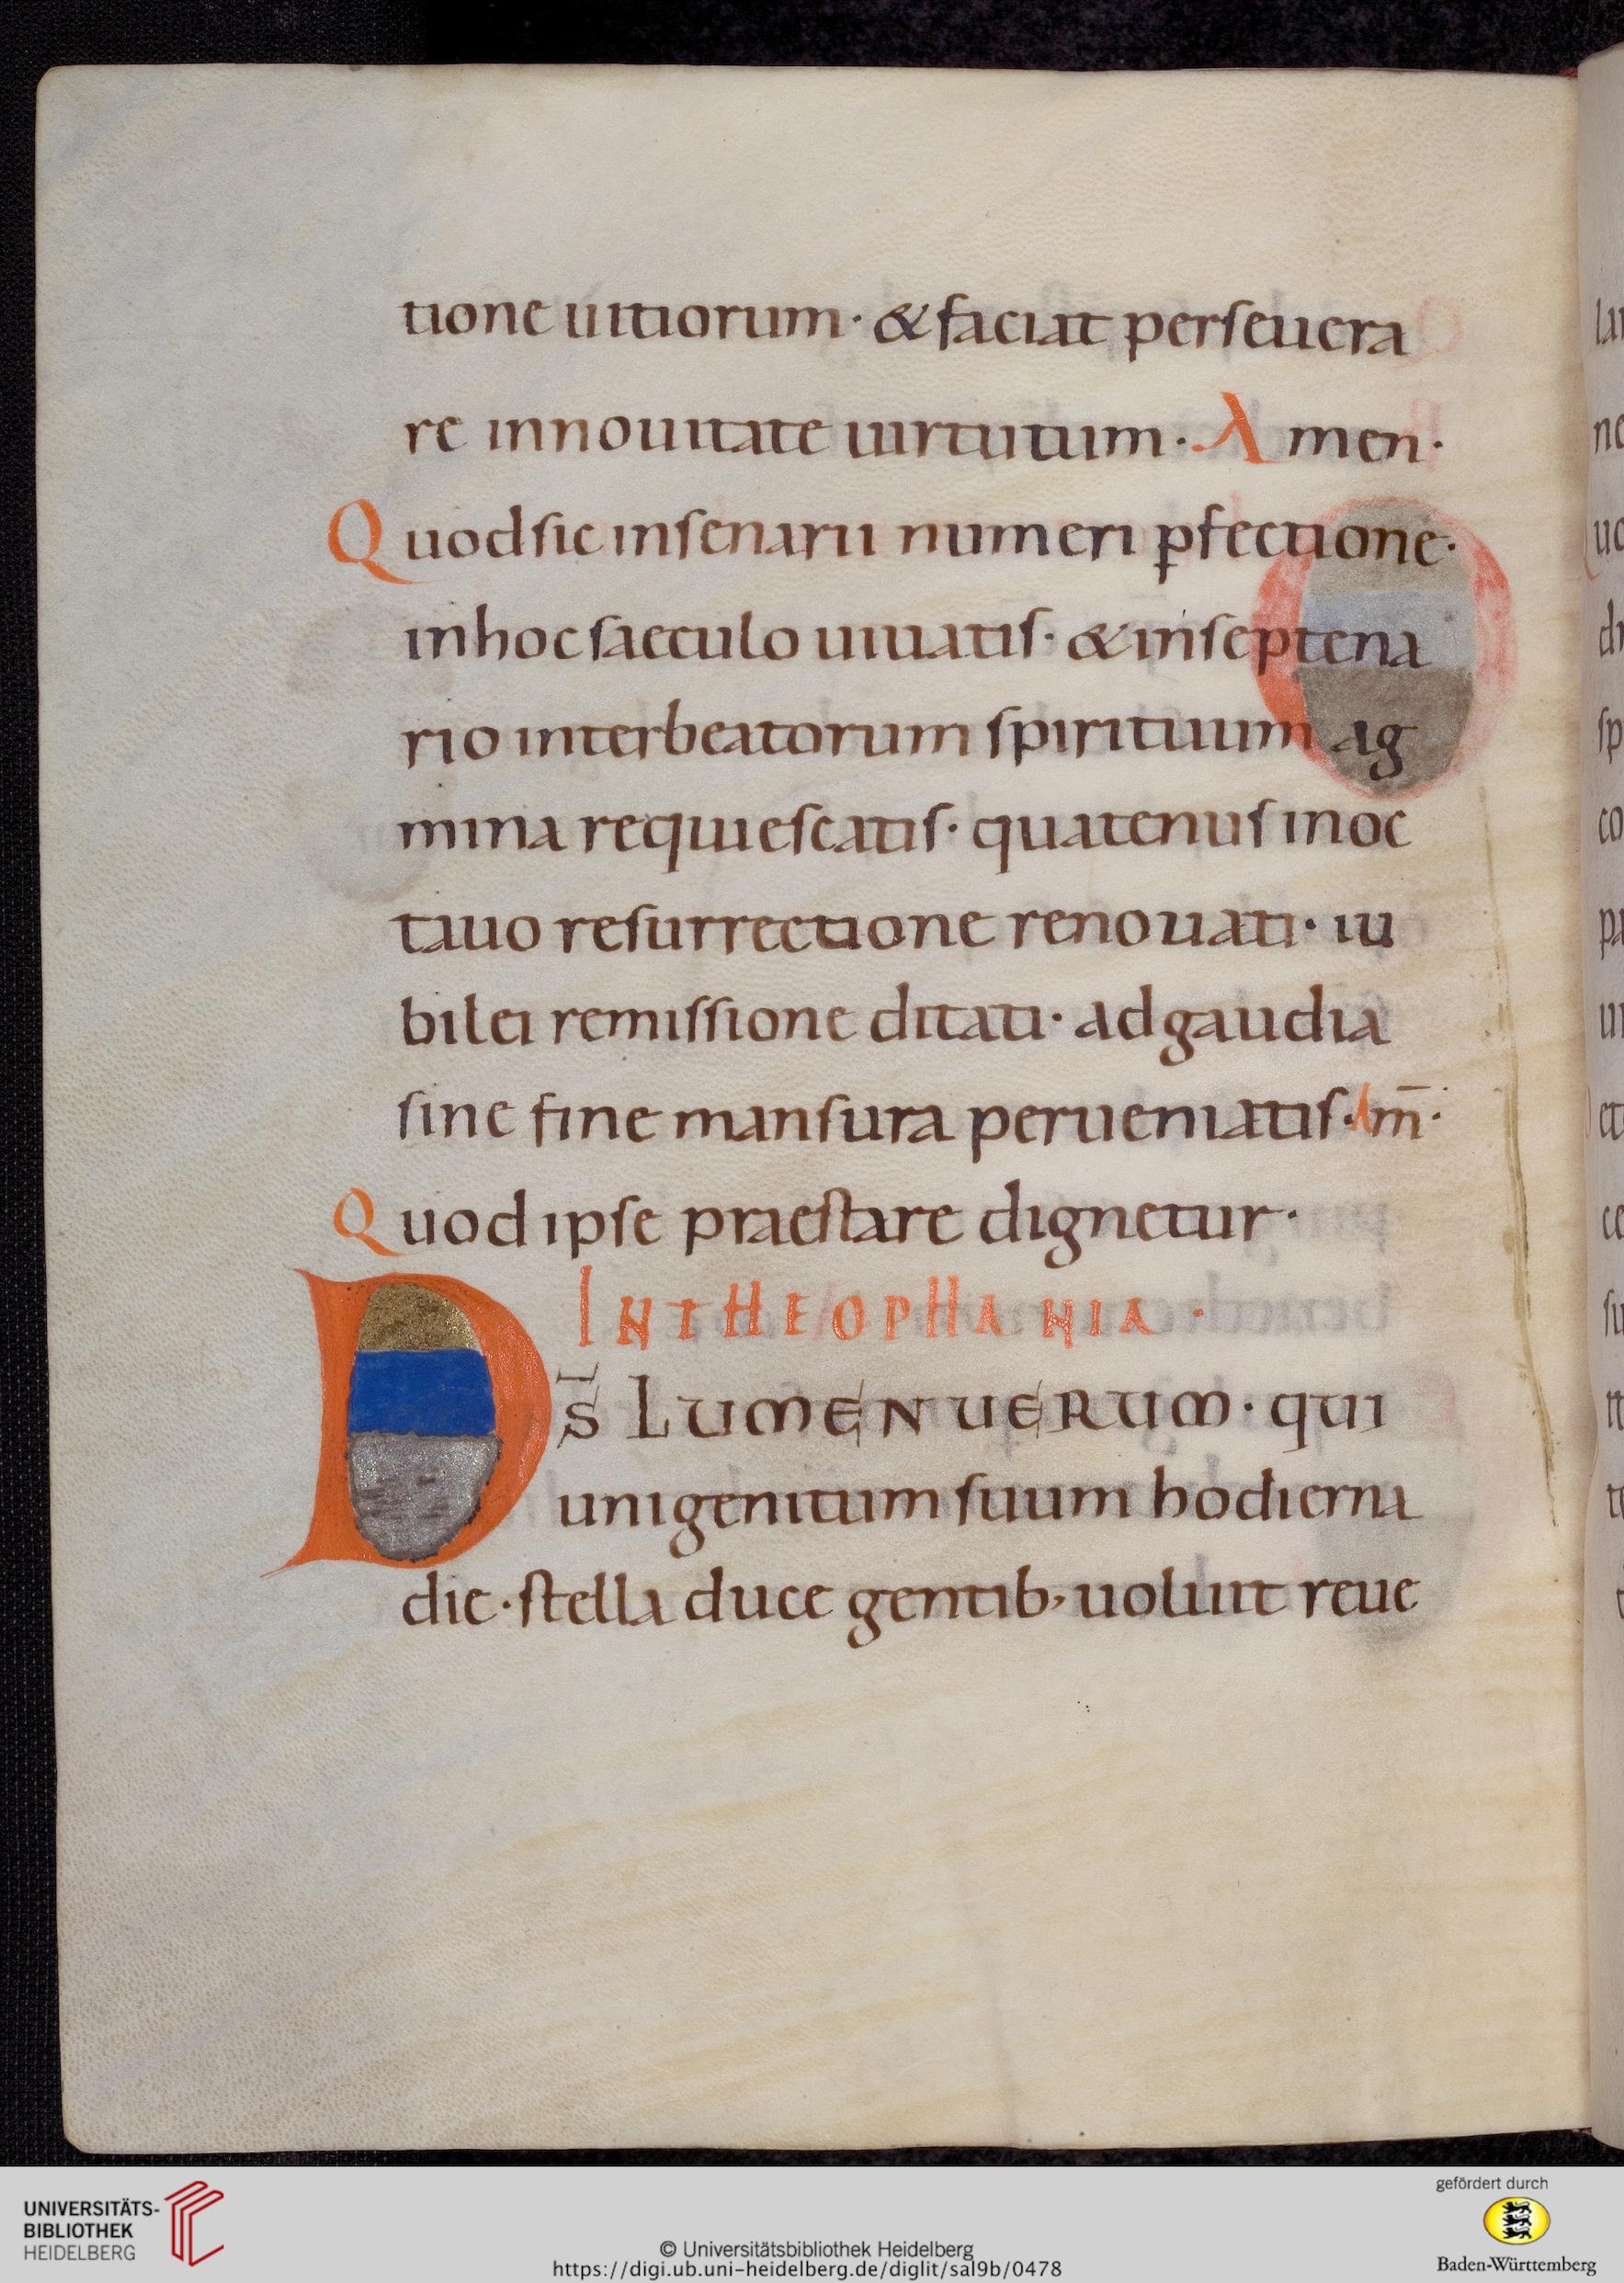 tione uitiorum· & faciat perseuera
re in nouitate uirtutum· Amen·
Quod sic in senarii numeri p̲fectione·
in hoc saeculo uiuatis· & in septena
rio inter beatorum spirituum ag
mina requiescatis· quatenus in oc
tauo resurrectione renouati· iu
bilei remissione ditati· ad gaudia
sine fine mansura perueniatis· Am̅·
Quod ipse praestare dignetur·
IN THEOPHANIA·
Ds̅ LUMEN UERUM· qui
unigenitum suum hodierna
die· stella duce gentib; uoluit reue
UNIVERSITÄTS-
BIBLIOTHEK
HEIDELBERG
© Universitätsbibliothek Heidelberg
https://digi.ub.uni-heidelberg.de/diglit/sal9b/0478
gefördert durch
Baden-Württemberg